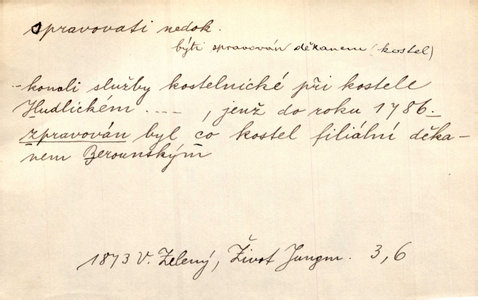 spravovati nedok.
býti spravován děkanem (kostel)
konali služby kostelnické při kostele
Hudlickém . . – . , jenž do roku 1786
zpravován byl co kostel filiální děka-
nem Berounským
1873 V. Zelený, Život Jungm. 3,6